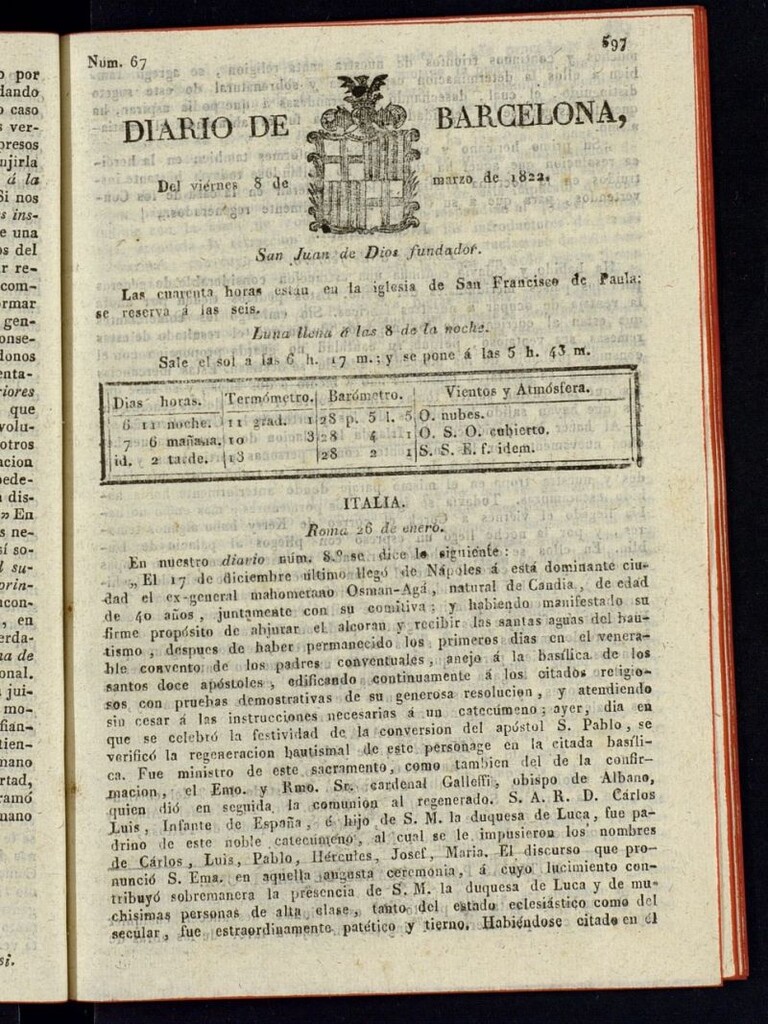 o por
dando
o caso
s ver-
presos
ujirla
á la
Si nos
s ins-
e una
os del
r re-
com-
ormar
gen-
onse-
donos
enta-
riores
que
volu-
otros
acion
pede-
dis-
» En
s ne-
sí so-
l su-
orin-
ncon-
, en
erda-
na de
onal.
s jui-
mo-
fian-
tien-
mano
rtad,
ramó
nano
si.
Num. 67
597
DIARIO DE BARCELONA,
Del viérnes 8 de marzo de 1822.
San Juan de Dios fundador.
Las cuarenta horas estan en la iglesia de San Francisco de Paula;
se reserva á las seis.
Luna llena á las 8 de la noche.
Sale el sol a las 6 h. 17 m.; y se pone á las 5 h. 43 m.
Dias horas. Termómetro. Barómetro. Vientos y Atmósfera.
6 11 noche. 11 grad. 1 28 p. 5 l. 5 O. nubes.
7 6 mañana. 10 3 28 4 1 O. S. O. cubierto.
id. 2 tarde. 13 28 2 1 S. S. E. f. idem.
ITALIA.
Roma 26 de enero.
En nuestro diario núm. 8.º se dice lo siguiente:
„El 17 de diciembre último llegó de Nápoles á está dominante ciu-
dad el ex-general mahometano Osman-Agá, natural de Candia, de edad
de 40 años, juntamente con su comitiva; y habiendo manifestado su
firme propósito de abjurar el alcoran y recibir las santas aguas del bau-
tismo, despues de haber permanecido los primeros dias en el venera-
ble convento de los padres conventuales, anejo á la basílica de los
santos doce apóstoles, edificando continuamente á los citados religio-
sos con pruebas demostrativas de su generosa resolucion, y atendiendo
sin cesar á las instrucciones necesarias á un catecúmeno; ayer, dia en
que se celebró la festividad de la conversion del apóstol S. Pablo, se
verificó la regeneracion bautismal de este personage en la citada basíli-
ca. Fue ministro de este sacramento, como tambien del de la confir-
macion, el Emo. y Rmo. Sr. cardenal Galleffi, obispo de Albano,
quien dió en seguida la comunion al regenerado. S. A. R. D. Cárlos
Luis, Infante de España, é hijo de S. M. la duquesa de Luca, fue pa-
drino de este noble catecúmeno, al cual se le impusieron los nombres
de Cárlos, Luis, Pablo, Hércules, Josef, Maria. El discurso que pro-
nunció S. Ema. en aquella augusta ceremonia, á cuyo lucimiento con-
tribuyó sobremanera la presencia de S. M. la duquesa de Luca y de mu-
chísimas personas de alta clase, tanto del estado eclesiástico como del
secular, fue estraordinamente patético y tierno. Habiéndose citado en él